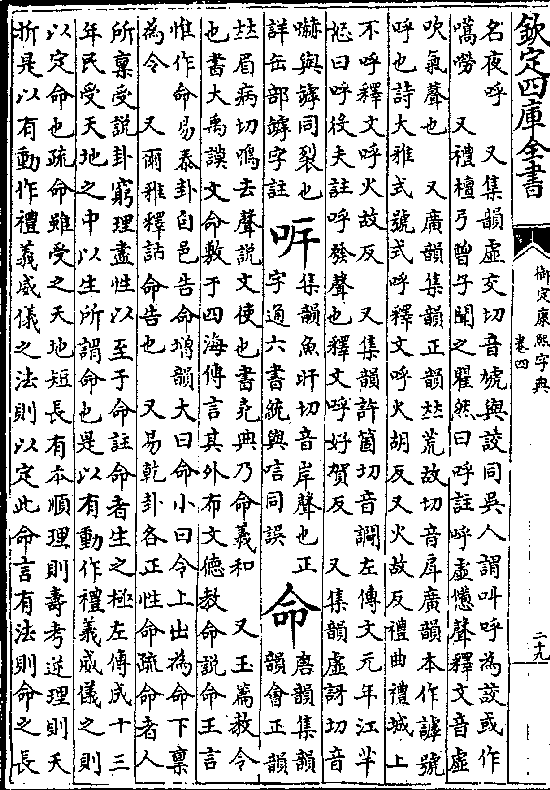 欽定四庫全書
御定康熙字典
卷四
二十九
名夜呼　又集韻虛交切音虓與詨同吳人謂叫呼為詨或作
嚆嘮　又禮檀弓曽子聞之瞿然曰呼註呼虛憊聲釋文音虛
吹氣聲也　又廣韻集韻正韻𠀤荒故切音戽廣韻本作謼號
呼也詩大雅式號式呼釋文呼火胡反又火故反禮曲禮城上
不呼釋文呼火故反　又集韻許箇切音謌左傳文元年江羋
怒曰呼役夫註呼發聲也釋文呼好賀反　又集韻虛訝切音
嚇與罅同裂也
詳缶部罅字註
吘
集韻魚旰切音岸聲也正
字通六書統與唁同誤
命
唐韻集韻
韻會正韻
𠀤眉病切鳴去聲說文使也書堯典乃命羲和　又玉篇教令
也書大禹謨文命敷于四海傳言其外布文德教命說命王言
惟作命易泰卦自邑告命增韻大曰命小曰令上出為命下禀
為令　又爾雅釋詁命告也　又易乾卦各正性命疏命者人
所禀受說卦窮理盡性以至于命註命者生之極左傳成十三
年民受天地之中以生所謂命也是以有動作禮義威儀之則
以定命也疏命雖受之天地短長有本順理則壽考逆理則夭
折是以有動作禮義威儀之法則以定此命言有法則命之長